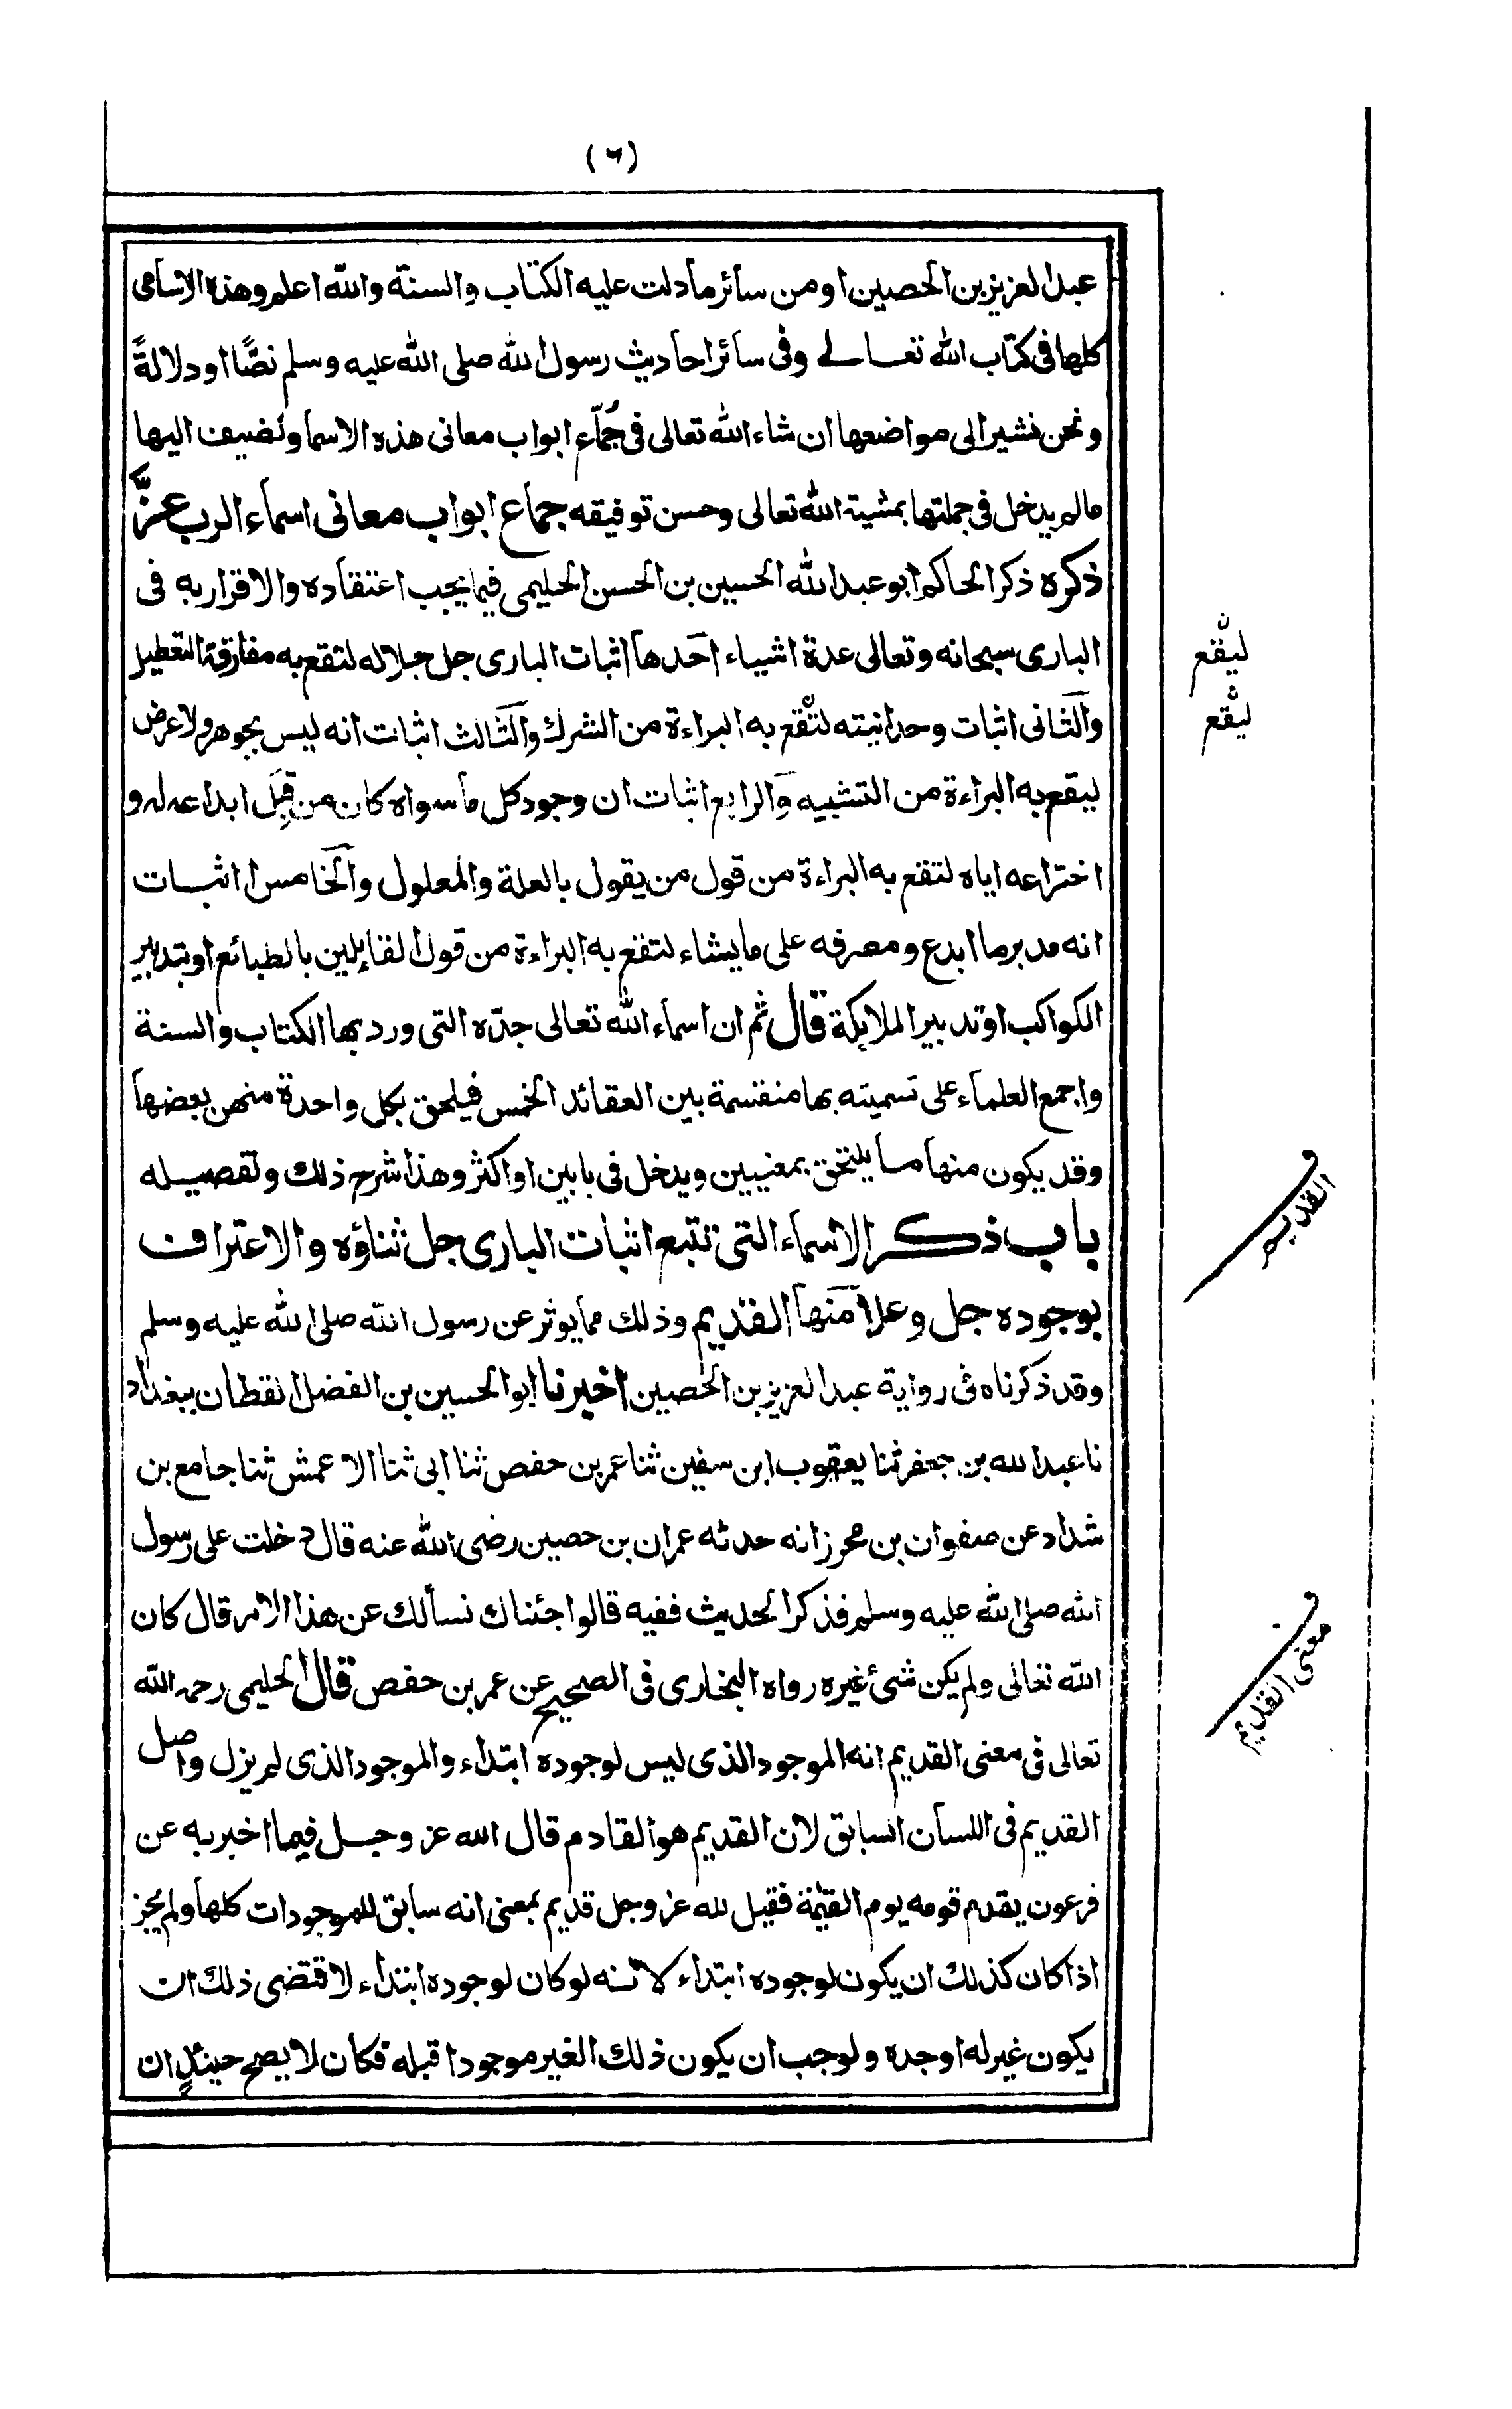 (٦)
عبد العزيز بن الحصين او من سائر ما دلت عليه الكتاب والسنة والله اعلم وهذه الاسامى
كلها فى كتاب الله تعالى وفى سائر احاديث رسول الله صلى الله عليه وسلم نصًّا او دلالةً
ونحن نشير الى مواضعها ان شاء الله تعالى فى جُمّاع ابواب معانى هذه الاسما ونضيف اليها
مالم يدخل فى جملتها بمشية الله تعالى وحسن توفيقه جماع ابواب معانى اسماء الرب عزَّ
ذكره ذكر الحاكم ابو عبد الله الحسين بن الحسن الحليمى فيما يجب اعتقاده والاقرار به فى
البارى سبحانه وتعالى عدة اشياء احدها اثبات البارى جل جلاله لتقع به مفارقة التعطيل
والثانى اثبات وحدانيته لتقع به البراءة من الشرك والثالث اثبات انه ليس بجوهر ولا عرض
ليقع به البراءة من التشبيه والرابع اثبات ان وجود كل ما سواه كان من قِبَل ابداعه له و
اختراعه اياه لتقع به البراءة من قول من يقول بالعلة والمعلول والخامس اثبات
انه مدبر ما ابدع ومصرفه على ما يشاء لتقع به البراءة من قول القايلين بالطبائع او بتدبير
الكواكب او تدبير الملايكة قال ثم ان اسماء الله تعالى جدّه التى ورد بها الكتاب والسنة
واجمع العلماء على تسميته بها منقسمة بين العقائد الخمس فيلحق بكل واحدة منهن بعضها
وقد يكون منها ما يلتحق بمعنيين ويدخل فى بابين او اكثر وهذا شرح ذلك وتفصيله
باب ذكر الاسماء التى تتبع اثبات البارى جل ثناؤه والاعتراف
بوجوده جل وعلا منها القديم وذلك مما يوثر عن رسول الله صلى الله عليه وسلم
وقد ذكرناه فى رواية عبد العزيز بن الحصين اخبرنا ابو الحسين بن الفضل القطان ببغداد
نا عبد الله بن جعفر ثنا يعقوب ابن سفين ثنا عمر بن حفص ثنا ابى ثنا الاعمش ثنا جامع بن
شداد عن صفوان بن محرز انه حدثه عمران بن حصين رضى الله عنه قال دخلت على رسول
الله صلى الله عليه وسلم فذكر الحديث ففيه قالوا جئناك نسألك عن هذا الامر قال كان
الله تعالى ولم يكن شئ غيره رواه البخارى فى الصحيح عن عمر بن حفص قال الحليمى رحمه الله
تعالى فى معنى القديم انه الموجود الذى ليس لوجوده ابتداء والموجود الذى لم يزل واصل
القديم فى اللسان السابق لان القديم هو القادم قال الله عز وجل فيما اخبر به عن
فرعون يقدم قومه يوم القيمة فقيل لله عز وجل قديم بمعنى انه سابق للموجودات كلها ولم يجز
اذا كان كذلك ان يكون لوجوده ابتداء لانه لو كان لوجوده ابتداء لاقتضى ذلك ان
يكون غير له اوجده ولوجب ان يكون ذلك الغير موجودا قبله فكان لا يصح حينئذٍ ان
ليقع
ليقع
القديم
معنى القديم